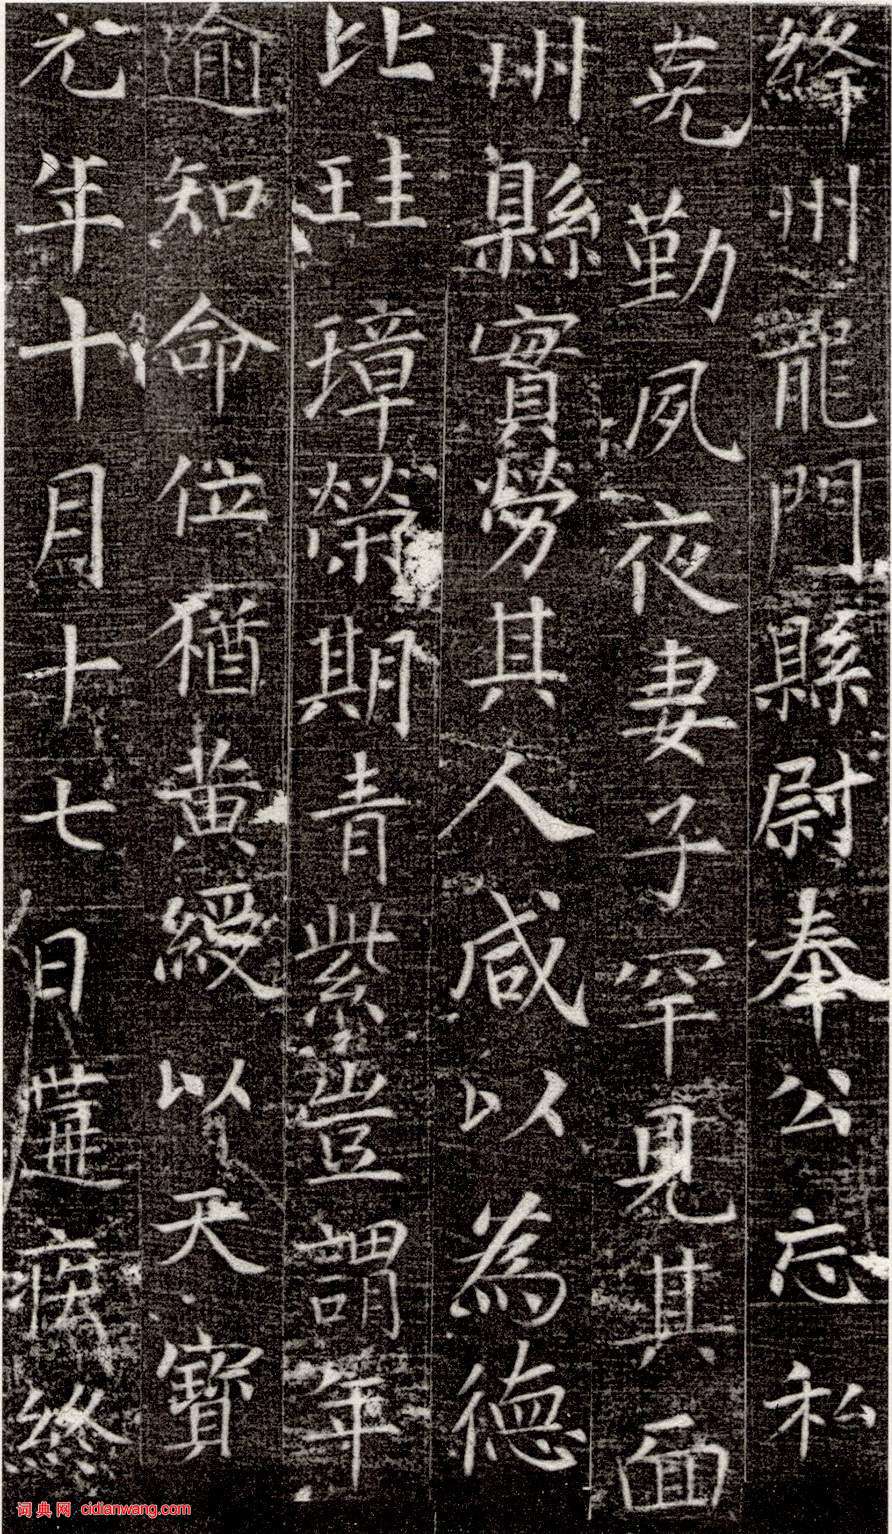 絳州龍門縣尉奉公忘私
克勤夙夜妻子罕見其面
州縣實勞其人咸以為德
比珪璋榮期青紫豈謂年
逾知命位猶黃綬以天寶
元年十月十七日遘疾終
词典网 cidianwang.com